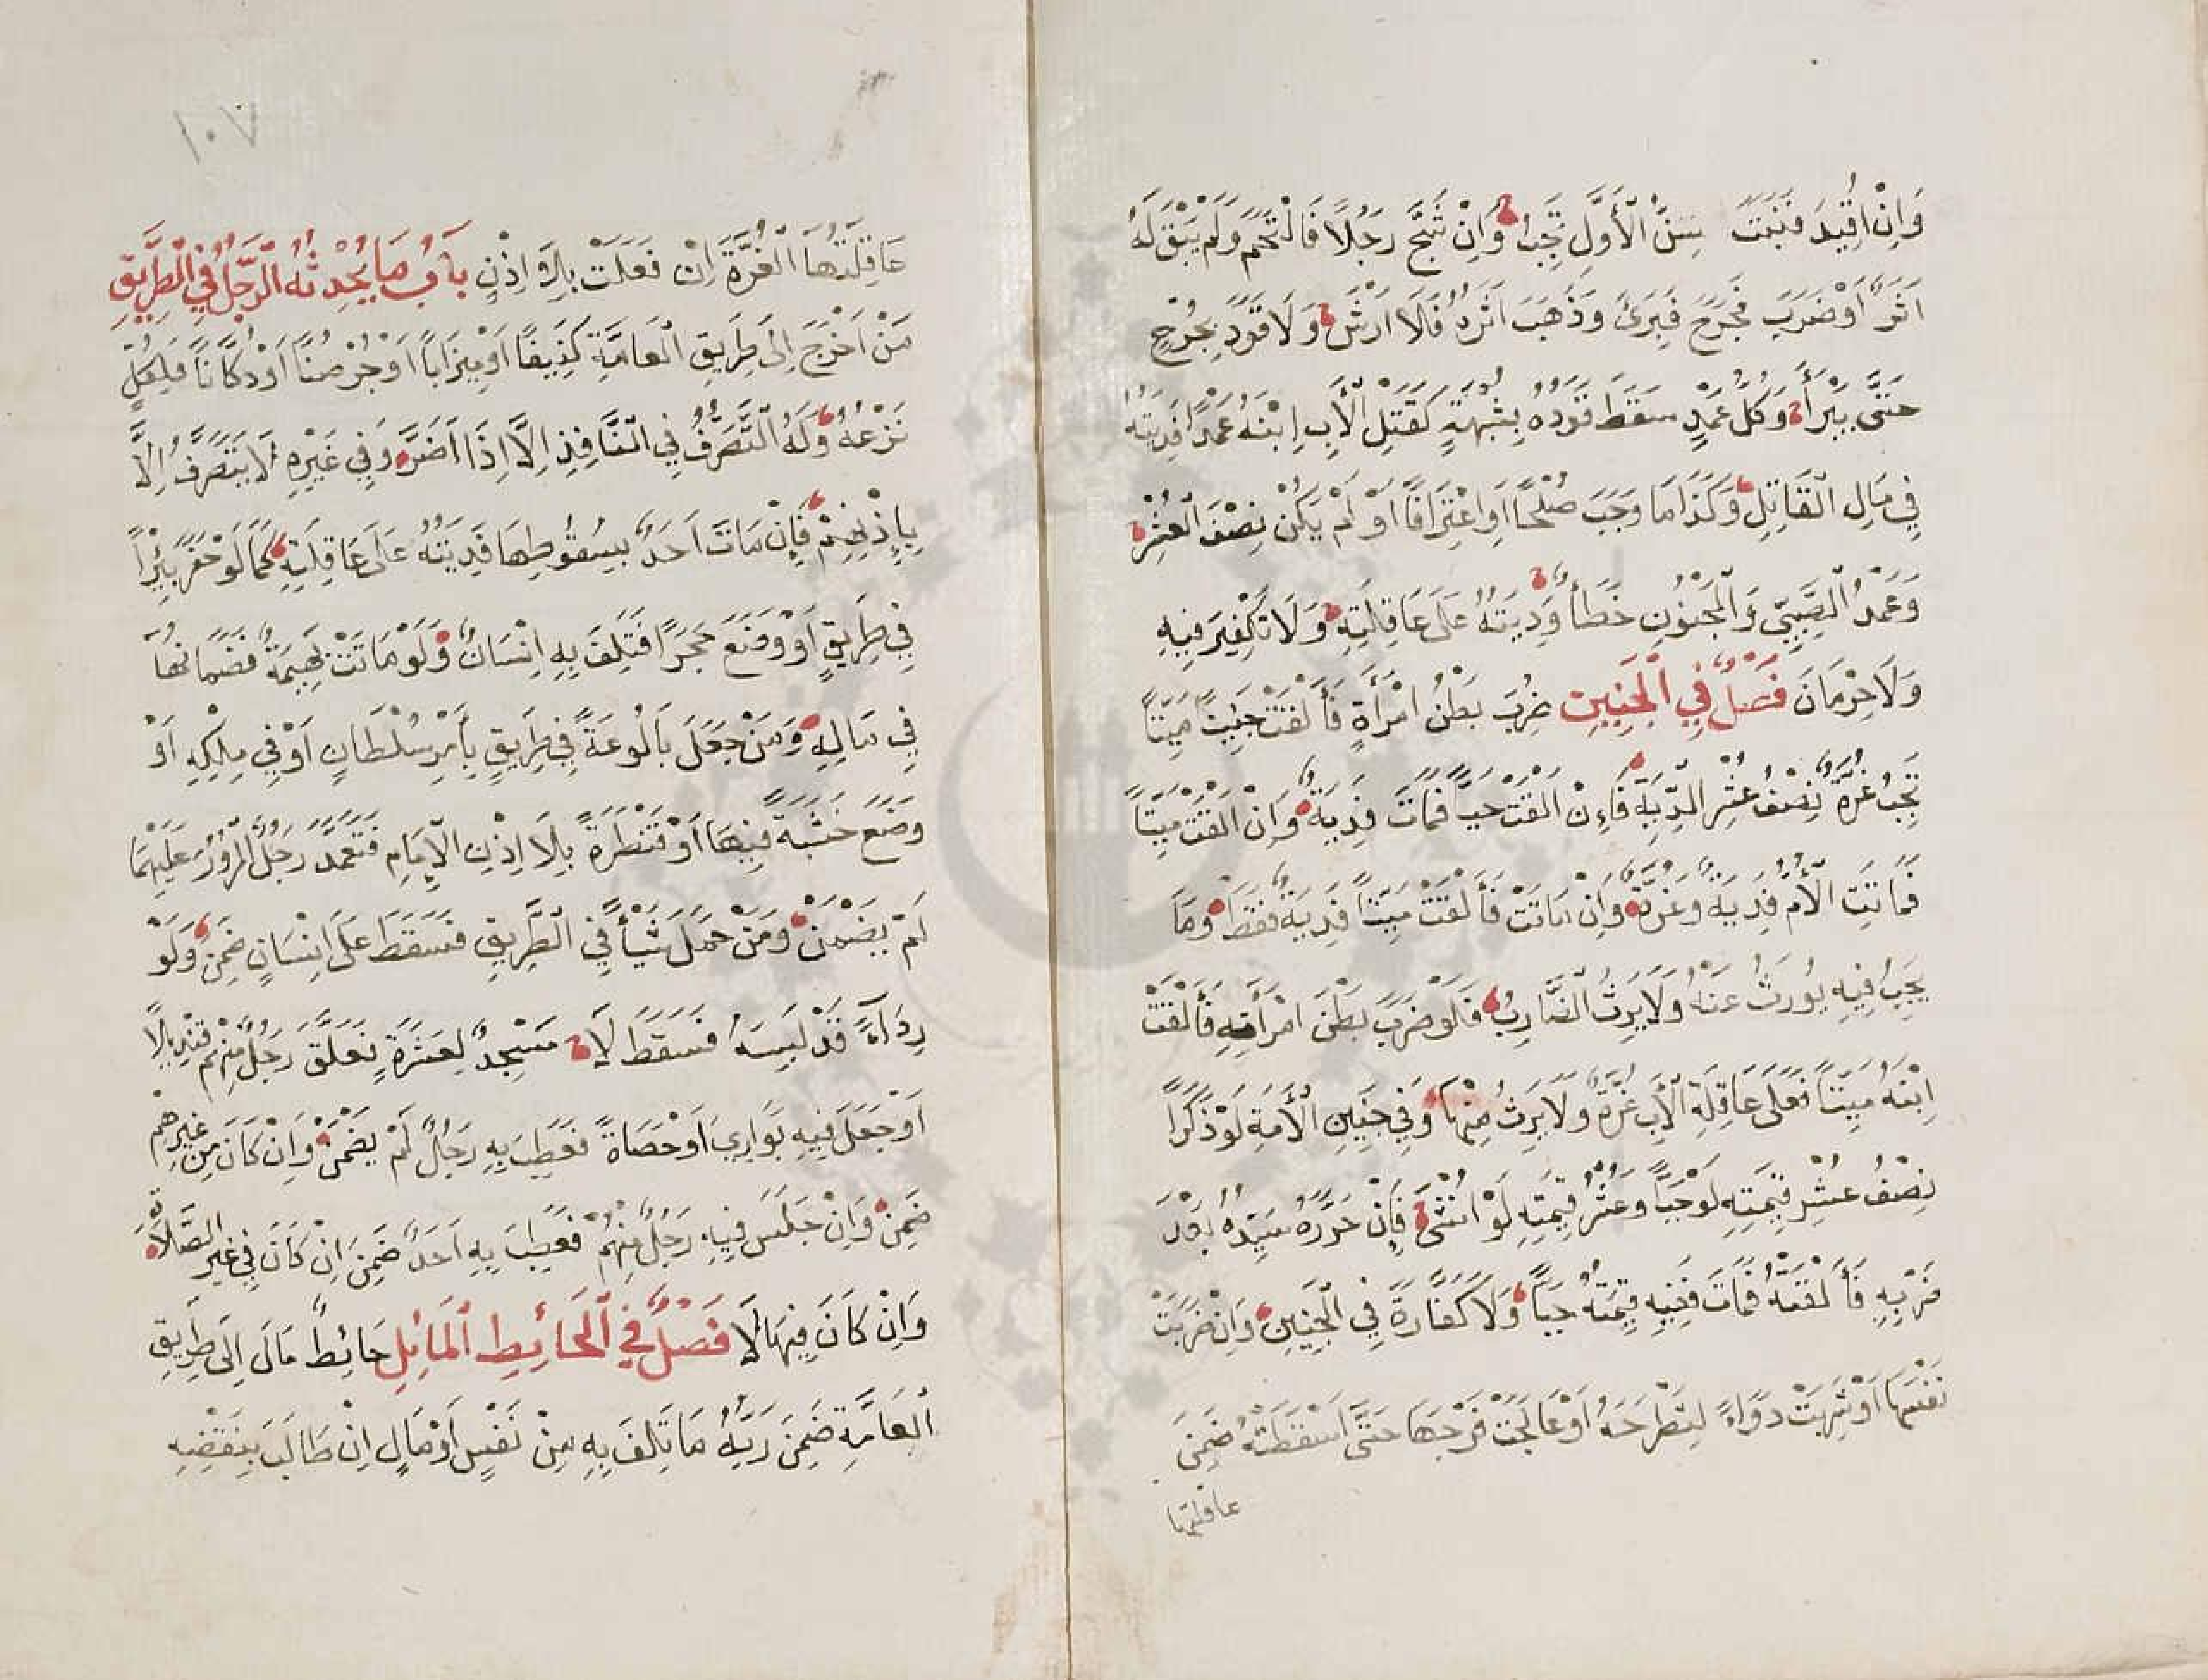 وَاِنْ اُقِيدَ فَنَبَتَتْ سِنُّ الْأَوَّلِ تَجِبُ وَاِنْ شَجَّ رَجُلاً فَالْتَحَمَ وَلَمْ يَبْقَ لَهُ
اَثَرٌ اَوْ ضَرَبَ فَجَرَحَ فَبَرِئَ وَذَهَبَ اَثَرُهُ فَلَا اَرْشَ وَلَا قَوَدَ بِجُرْحٍ
حَتَّى يَبْرَأَ وَكُلُّ عَمْدٍ سَقَطَ قَوَدُهُ بِشُبْهَةٍ كَقَتْلِ الْأَبِ اِبْنَهُ عَمْدًا فَدِيَتُهُ
فِي مَالِ الْقَاتِلِ وَكَذَا مَا وَجَبَ صُلْحًا اَوِ اعْتِرَافًا اَوْ لَمْ يَكُنْ نِصْفَ الْعُشْرِ
وَعَمْدُ الصَّبِيِّ وَالْمَجْنُونِ خَطَأٌ وَدِيَتُهُ عَلَى عَاقِلَتِهِ وَلَا تَكْفِيرَ فِيهِ
وَلَا حِرْمَانَ فَصْلٌ فِي الْجَنِينِ ضُرِبَ بَطْنُ امْرَأَةٍ فَأَلْقَتْ جَنِيناً مَيِّتاً
تَجِبُ غُرَّةٌ نِصْفُ عُشْرِ الدِّيَةِ فَاِنْ اَلْقَتْ حَيًّا فَمَاتَ فَدِيَةٌ وَاِنْ اَلْقَتْ مَيِّتاً
فَمَاتَتِ الْأُمُّ فَدِيَةٌ وَغُرَّةٌ وَاِنْ مَاتَتْ فَأَلْقَتْ مَيِّتاً فَدِيَةٌ فَقَطْ وَمَا
يَجِبُ فِيهِ يُورَثُ عَنْهُ وَلَا يَرِثُ الضَّارِبُ فَلَوْ ضَرَبَ بَطْنَ امْرَأَتِهِ فَأَلْقَتْ
اِبْنَهُ مَيِّتاً فَعَلَى عَاقِلَةِ الْأَبِ غُرَّةٌ وَلَا يَرِثُ مِنْهَا وَفِي جَنِينِ الْأَمَةِ لَوْ ذَكَرًا
نِصْفُ عُشْرِ قِيمَتِهِ لَوْ حَيًّا وَعُشْرُ قِيمَتِهِ لَوْ اُنْثَى فَاِنْ حَرَّرَهُ سَيِّدُهُ بَعْدَ
ضَرْبِهِ فَأَلْقَتْهُ فَمَاتَ فَفِيهِ قِيمَتُهُ حَيًّا وَلَا كَفَّارَةَ فِي الْجَنِينِ وَاِنْ ضَرَبَتْ
نَفْسَهَا اَوْ شَرِبَتْ دَوَاءً لِتَطْرَحَهُ اَوْ عَالَجَتْ فَرْجَهَا حَتَّى اَسْقَطَتْهُ ضَمِنَ
عاقلتها
١٠٧
عَاقِلَتُهَا الْغُرَّةَ اِنْ فَعَلَتْ بِلَا اِذْنٍ بَابُ مَا يُحْدِثُهُ الرَّجُلُ فِي الطَّرِيقِ
مَنْ اَخْرَجَ اِلَى طَرِيقِ الْعَامَّةِ كَنِيفًا اَوْ مِيزَاباً اَوْ جُرْصُنًا اَوْ دُكَّانًا فَلِكُلٍّ
نَزْعُهُ وَلَهُ التَّصَرُّفُ فِي النَّافِذِ اِلَّا اِذَا اَضَرَّ وَفِي غَيْرِهِ لَا يَتَصَرَّفُ اِلَّا
بِاِذْنِهِمْ فَاِنْ مَاتَ اَحَدٌ بِسُقُوطِهَا فَدِيَتُهُ عَلَى عَاقِلَتِهِ كَمَا لَوْ حَفَرَ بِئْرًا
فِي طَرِيقٍ اَوْ وَضَعَ حَجَرًا فَتَلِفَ بِهِ اِنْسَانٌ وَلَوْ مَاتَتْ بَهِيمَةٌ فَضَمَانُهَا
فِي مَالِهِ وَمَنْ جَعَلَ بَالُوعَةً فِي طَرِيقٍ بِأَمْرِ سُلْطَانٍ اَوْ فِي مِلْكِهِ اَوْ
وَضَعَ خَشَبَةً فِيهَا اَوْ قَنْطَرَةً بِلَا اِذْنِ الْاِمَامِ فَتَعَمَّدَ رَجُلٌ الْمُرُورَ عَلَيْهِمَا
لَمْ يَضْمَنْ وَمَنْ حَمَلَ شَيْأً فِي الطَّرِيقِ فَسَقَطَ عَلَى اِنْسَانٍ ضَمِنَ وَلَوْ
رِدَاءً قَدْ لَبِسَهُ فَسَقَطَ لَا مَسْجِدٌ لِعَشَرَةٍ فَعَلَّقَ رَجُلٌ مِنْهُمْ قِنْدِيلًا
اَوْ جَعَلَ فِيهِ بَوَارِيَ اَوْ حَصَاةً فَعَطِبَ بِهِ رَجُلٌ لَمْ يَضْمَنْ وَاِنْ كَانَ مِنْ غَيْرِهِمْ
ضَمِنَ وَاِنْ جَلَسَ فِيهِ رَجُلٌ مِنْهُمْ فَعَطِبَ بِهِ اَحَدٌ ضَمِنَ اِنْ كَانَ فِي غَيْرِ الصَّلَاةِ
وَاِنْ كَانَ فِيهَا لَا فَصْلٌ فِي الْحَائِطِ الْمَائِلِ حَائِطٌ مَالَ اِلَى طَرِيقِ
الْعَامَّةِ ضَمِنَ رَبُّهُ مَا تَلِفَ بِهِ مِنْ نَفْسٍ اَوْ مَالٍ اِنْ طَالَبَ بِنَقْضِهِ